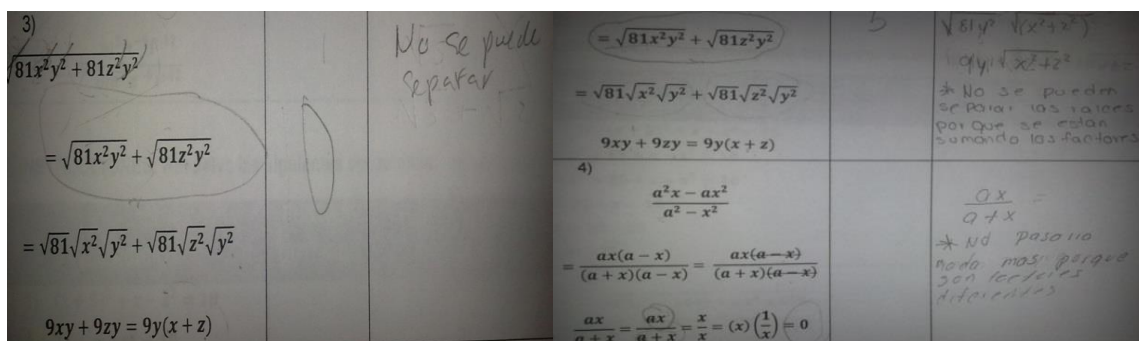 3)
√81x²y² + 81z²y²
= √81x²y² + √81z²y²
= √81√x²√y² + √81√z²√y²
9xy + 9zy = 9y(x + z)
No se puede
separar
= √81x²y² + √81z²y²
= √81√x²√y² + √81√z²√y²
9xy + 9zy = 9y(x + z)
5
√81y² √(x²+z²)
9y √x²+z²
* No se pueden
separar las raíces
porque se estan
sumando los factores
4)
a²x − ax²
a² − x²
= ax(a − x) / (a + x)(a − x) = ax(a − x) / (a + x)(a − x)
ax / a + x = ax / a + x = x / x = (x)(1/x) = 0
ax / a+x =
* No pasaria
nada mas porque
son factores
diferentes